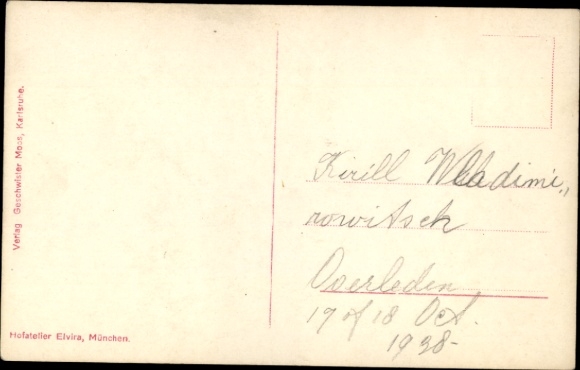 Verlag Geschwister Moos, Karlsruhe.
Hofatelier Elvira, München.
Kirill Wladimi„
rowitsch
Overleden
17 of 18 Oct.
1938-